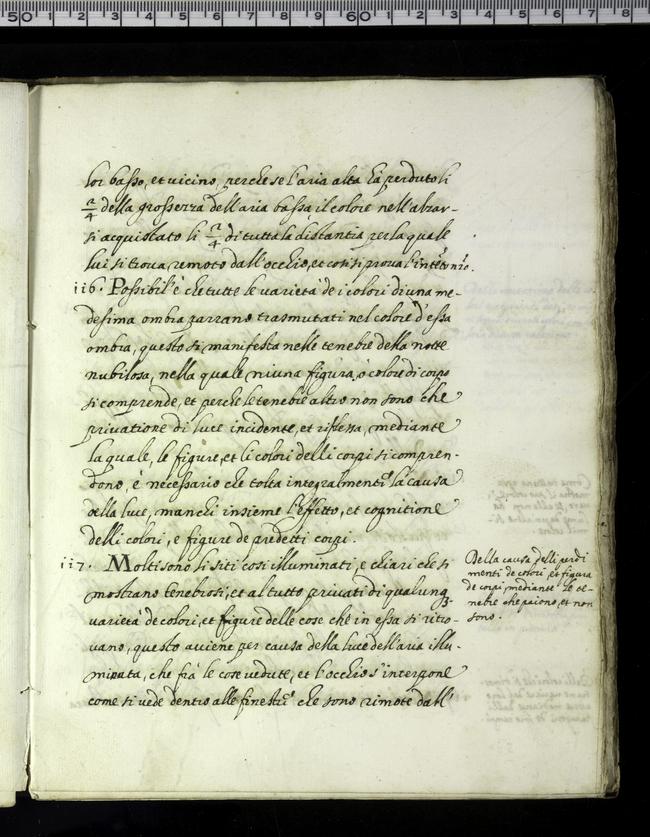 loi basso, et uicino, perche se l'aria alta hà perduto li
2/4 della grossezza dell'aria bassa il colore nell'alzar-
si acquistato li 2/4 di tutta la distantia per la quale
lui si troua remoto dall'occhio, et cosi si proua
116. Possibil'è che tutte le varietà de i colori di una me-
desima ombra parrano trasmutati nel colore d'essa
ombra, questo si manifesta nelle tenebre della notte
nubilosa, nella quale niuna figura, ò colore di corpo
si comprende, et perche le tenebre altro non sono che
priuatione di luce incidente, et riflessa, mediante
la quale, le figure, et li colori delli corpi si compren-
dono, è necessario che tolta integralmente la causa
della luce, manchi insieme l'effetto, et cognitione
delli colori, e figure de predetti corpi.
117. Molti sono li siti cosi illuminati, e chiari che si
mostrano tenebrosi, et al tutto priuati di qualunq3
varietà de colori, et figure delle cose che in essa si ritro-
uano, questo auiene per causa della luce dell'aria illu-
minata, che frà le cose vedute, et l'occhio s'interpone
come si vede dentro alle finestre che sono rimote dall'
Della causa delli perdi
menti de colori, et figura
de corpi mediante le te-
nebre che paiono, et non
sono.